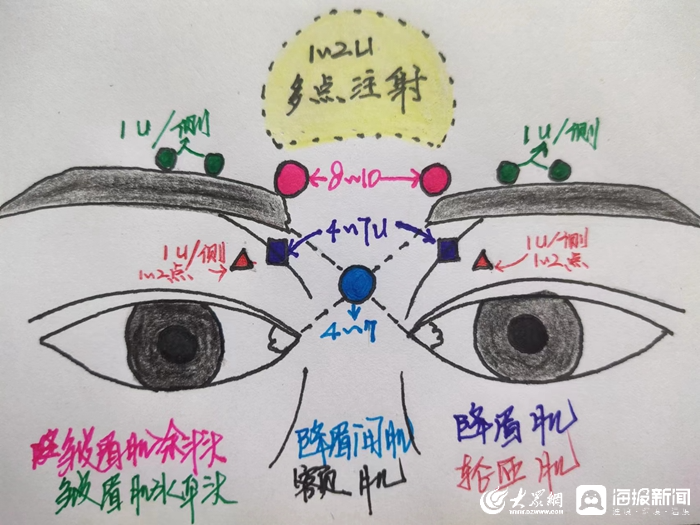 1~2U
多点注射
1U/侧
1U/侧
8~10
4~7U
1U/侧
1~2点
1U/侧
1~2点
4~7
皱眉肌斜头
皱眉肌水平头
降眉间肌
额肌
降眉肌
轮匝肌
大众网
海报新闻